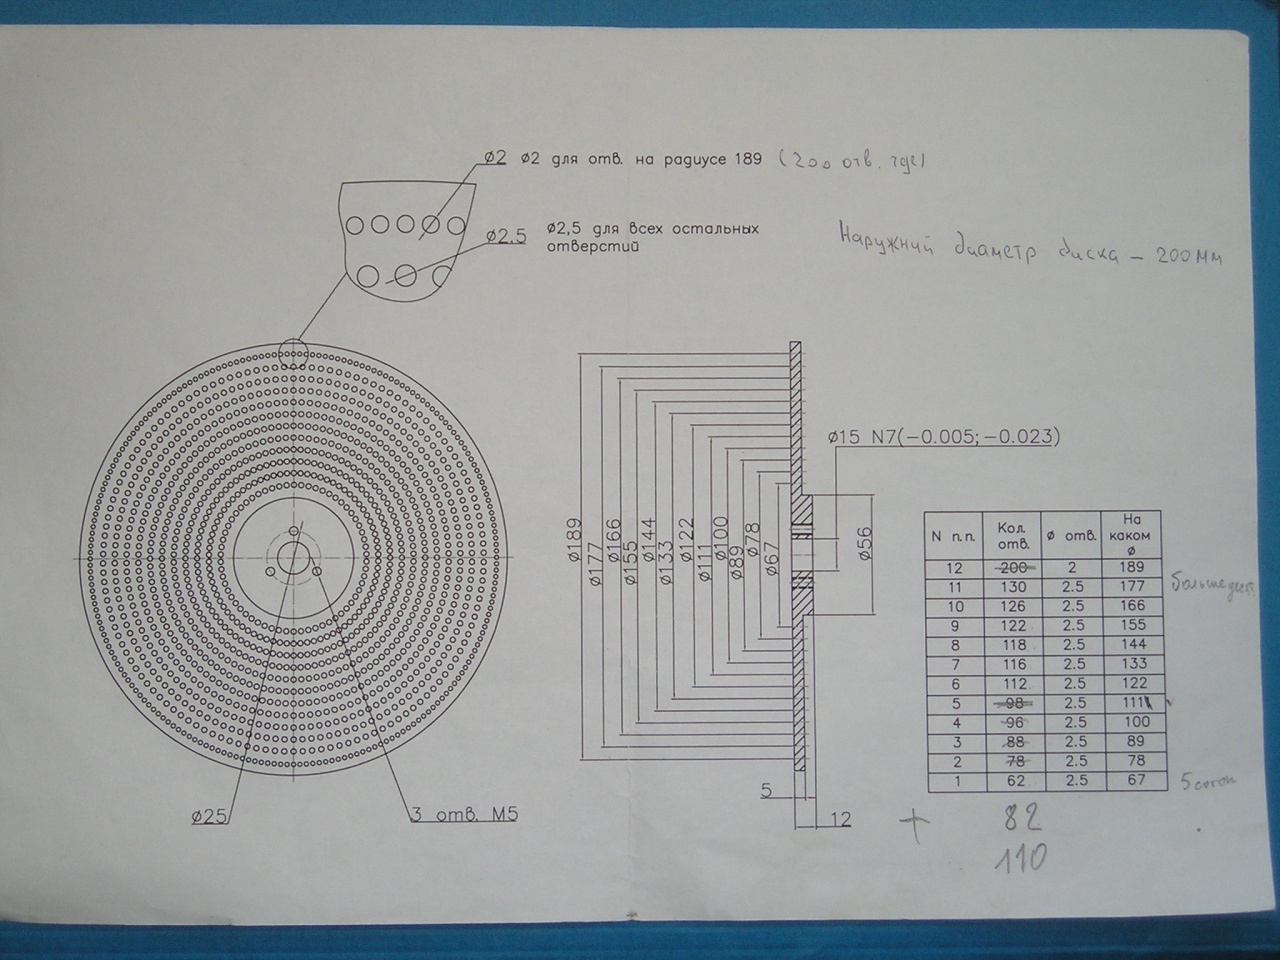 ⌀2 ⌀2 для отв. на радиусе 189 (200 отв.
⌀2.5 ⌀2,5 для всех остальных
отверстий
Наружний диаметр диска – 200мм
⌀15 N7(−0.005;−0.023)
⌀189
⌀177
⌀166
⌀155
⌀144
⌀133
⌀122
⌀111
⌀100
⌀89
⌀78
⌀67
⌀56
5
12
⌀25
3 отв. М5
N п.п. Кол. отв. ⌀ отв. На каком ⌀
12 200 2 189
11 130 2.5 177
10 126 2.5 166
9 122 2.5 155
8 118 2.5 144
7 116 2.5 133
6 112 2.5 122
5 98 2.5 111
4 96 2.5 100
3 88 2.5 89
2 78 2.5 78
1 62 2.5 67
+ 82
110